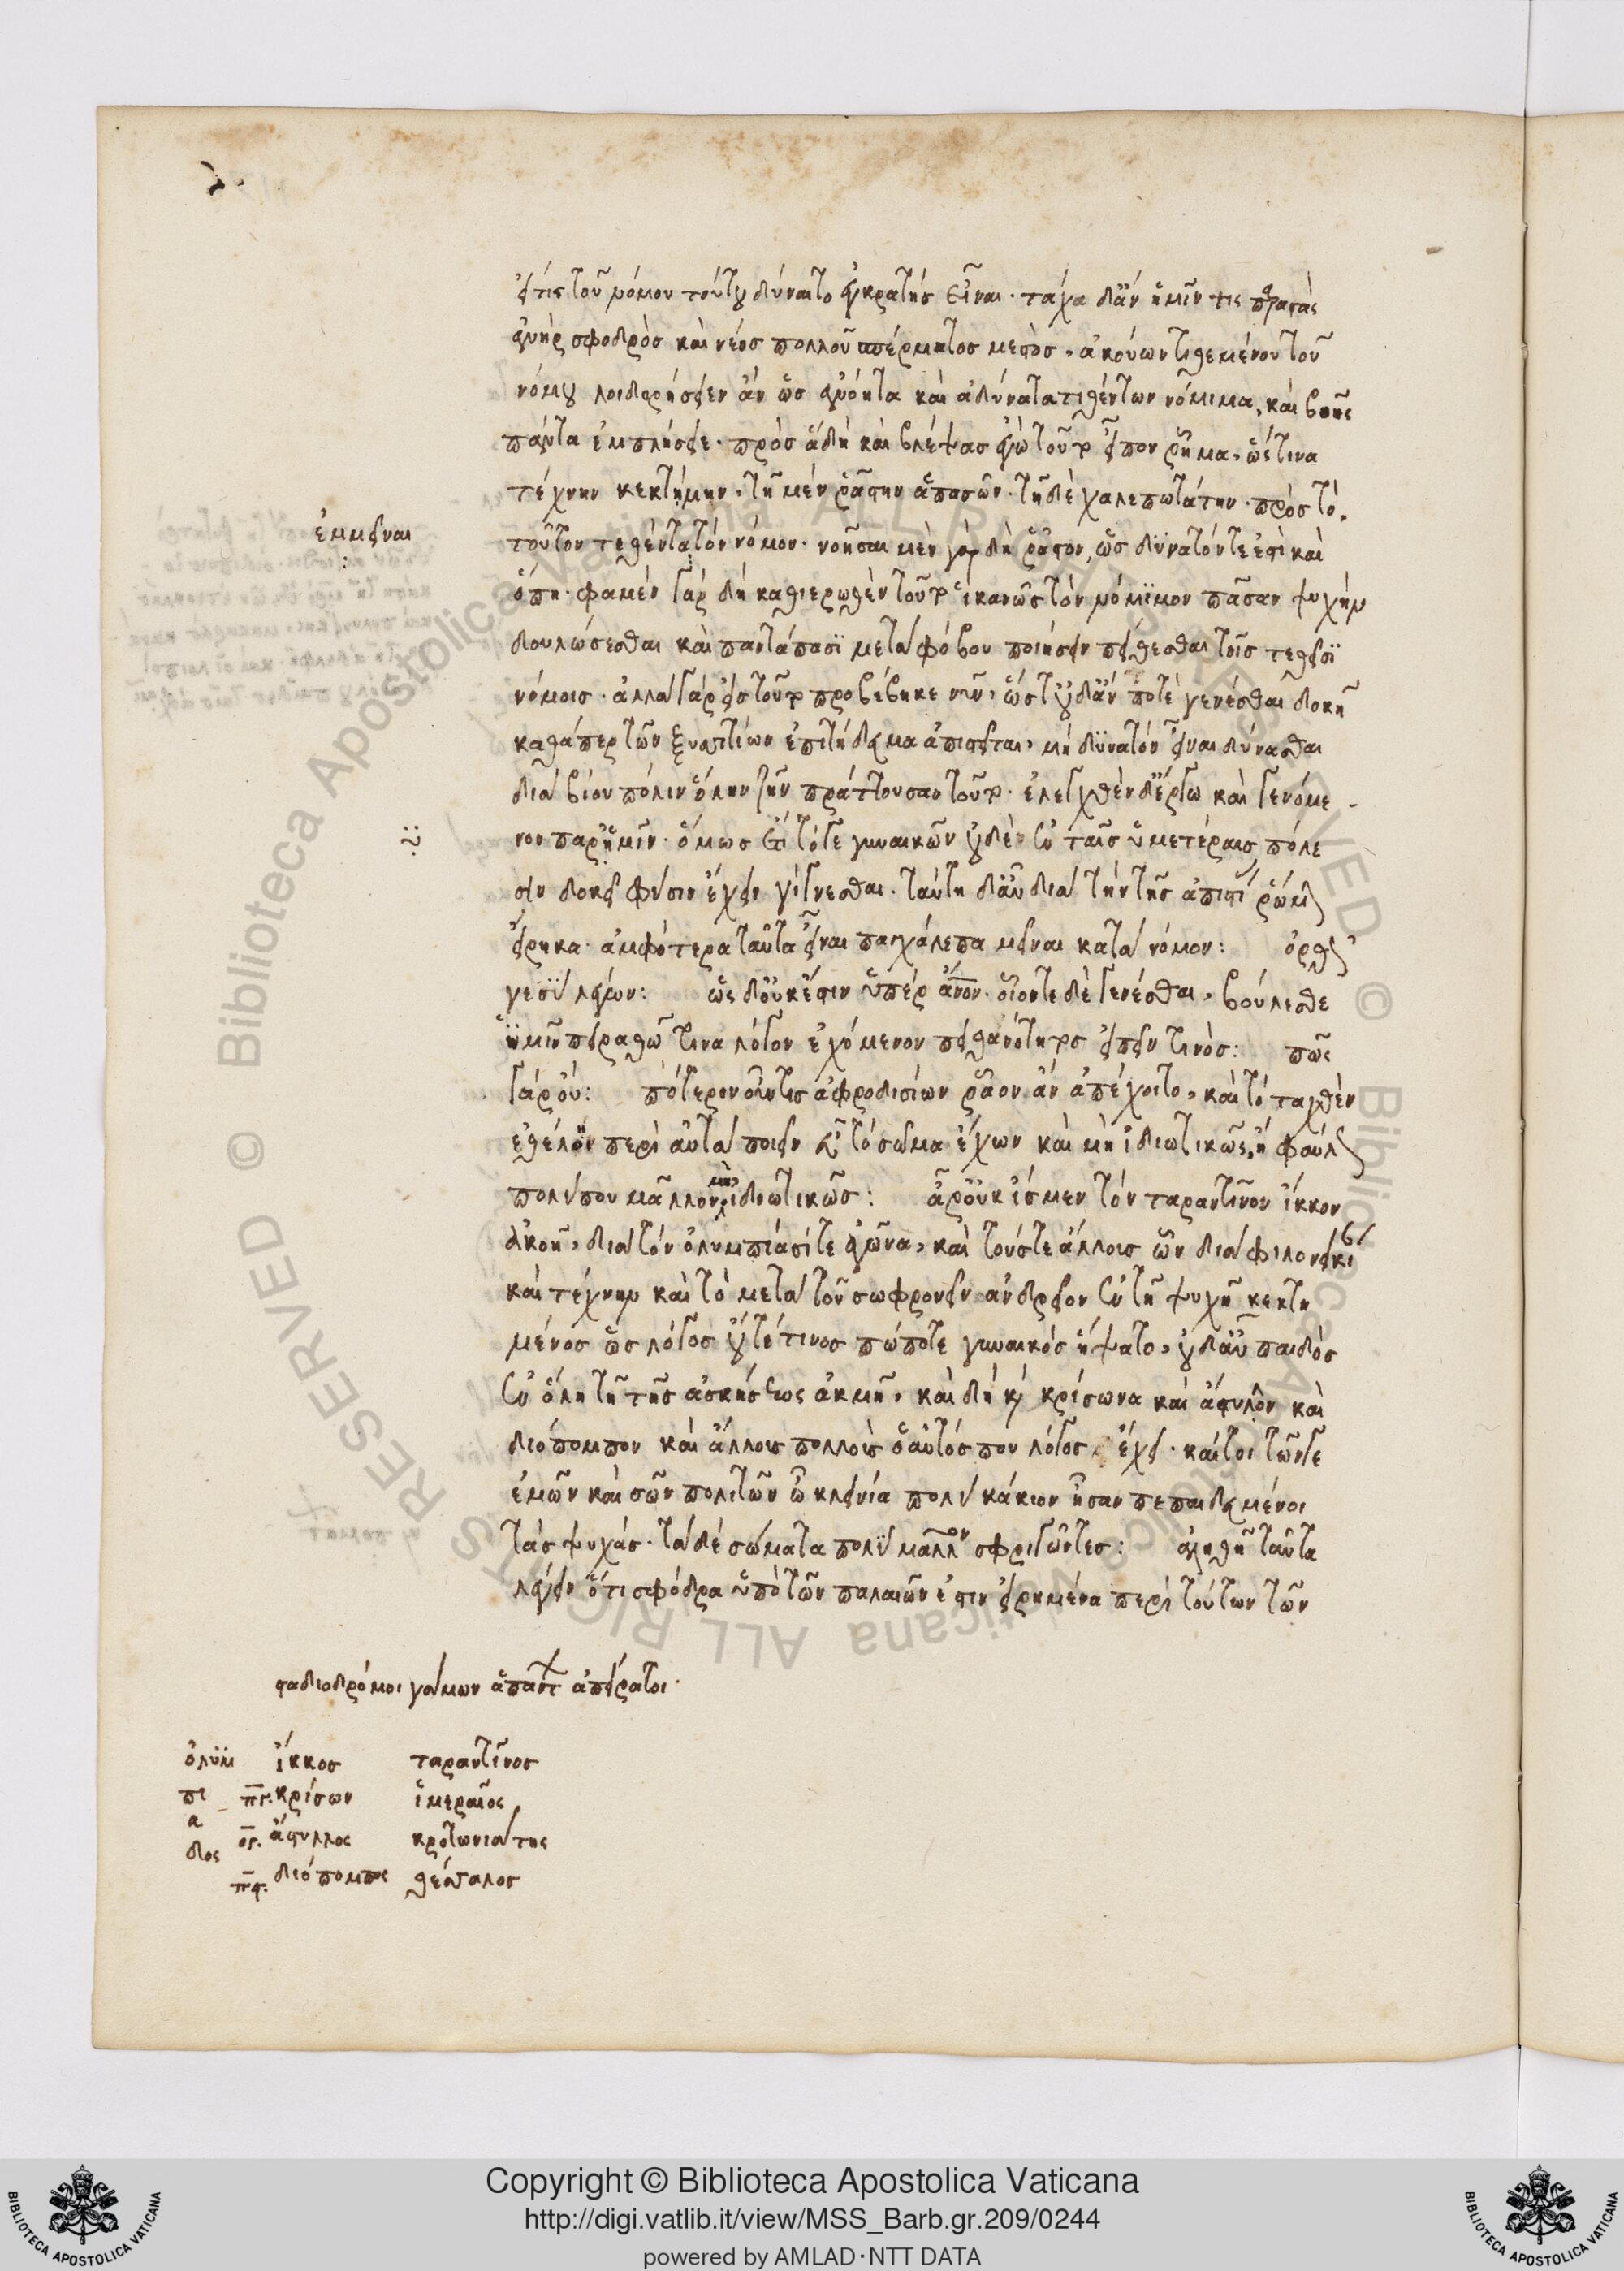 εἴ τις τοῦ νόμου τούτου δύναιτο ἐγκρατὴς εἶναι· τάχα δ' ἂν ἡμῖν τις παραστὰς
ἀνὴρ σφοδρὸς καὶ νέος πολλοῦ σπέρματος μεστὸς, ἀκούων τιθεμένου τοῦ
νόμου λοιδορήσειεν ἂν ὡς ἀνόητα καὶ ἀδύνατα τιθέντων νόμιμα, καὶ βοῆς
πάντα ἐμπλήσειε· πρὸς ἃ δὴ καὶ βλέψας ἐγὼ τοῦτο εἶπον ῥῆμα, ὥς τινα
τέχνην κεκτήμην, τῇ μὲν ῥᾴστην ἁπασῶν· τῇ δὲ χαλεπωτάτην· πρὸς τὸ,
τοῦτον τεθέντα τὸν νόμον· νοῆσαι μὲν γὰρ δὴ ῥᾷστον, ὡς δυνατόν τε ἐστὶ καὶ
ὅπῃ· φαμὲν γὰρ δὴ καθιερωθὲν τοῦτο ἱκανῶς τὸν νόμιμον πᾶσαν ψυχὴν
δουλώσεσθαι καὶ παντάπασι μετὰ φόβου ποιήσειν πείθεσθαι τοῖς τεθεῖσι
νόμοις· ἀλλὰ γὰρ εἰς τοῦτο προβέβηκε νῦν, ὥστ' οὐδ' ἂν ποτὲ γενέσθαι δοκῇ
καθάπερ τῶν ξυσσιτίων ἐπιτήδευμα ἀπιστεῖται, μὴ δυνατὸν εἶναι δύνασθαι
διὰ βίου πόλιν ὅλην ζῆν πράττουσαν τοῦτο· ἐλεγχθὲν δ' ἔργω καὶ γενόμε-
νον παρ' ἡμῖν· ὅμως ἔτι τότε γυναικῶν οὐδὲ ἐν ταῖς ὑμετέραις πόλε
σιν δοκεῖ φύσιν ἔχειν γίγνεσθαι· ταύτῃ δ' αὖ διὰ τὴν τῆς ἀπιστί ῥώμ
εἴρηκα· ἀμφότερα ταῦτα εἶναι παγχάλεπα μεῖναι κατὰ νόμον: ὀρθ
γε σὺ λέγων: ὡς δ' οὐκ ἔστιν ὑπὲρ ἄνον· οἷόν τε δὲ γενέσθαι, βούλεσθε
ὑμῖν πειραθῶ τινα λόγον ἐχόμενον πιθανότητος εἰπεῖν τινός: πῶς
γὰρ οὔ: πότερον οὖν τις ἀφροδισίων ῥᾷον ἂν ἀπέχοιτο, καὶ τὸ ταχθὲν
ἐθέλοι περὶ αὐτὰ ποιεῖν εὖ τὸ σῶμα ἔχων καὶ μὴ ἰδιωτικῶς, ἢ φαύλ
πολύ που μᾶλλον μὴ ἰδιωτικῶς: ἆρ' οὐκ ἴσμεν τὸν ταραντῖνον ἴκκον
ἀκοῇ, διὰ τὸν ὀλυμπίασί τε ἀγῶνα, καὶ τούς τε ἄλλοις ὧν διὰ φιλονεικί
καὶ τέχνην καὶ τὸ μετὰ τοῦ σωφρονεῖν ἀνδρεῖον ἐν τῇ ψυχῇ κεκτη
μένος ὡς λόγος οὔτέ τινος πώποτε γυναικὸς ἥψατο, οὐδ' αὖ παιδὸς
ἐν ὅλῃ τῇ τῆς ἀσκήσεως ἀκμῇ, καὶ δὴ καὶ κρίσωνα καὶ ἄστυλον καὶ
διόπομπον καὶ ἄλλους πολλοὺς ὁ αὐτός που λόγος ἔχει· καίτοι τῶν γε
ἐμῶν καὶ σῶν πολιτῶν ὦ κλεινία πολὺ κάκιον ἦσαν πεπαιδευμένοι
τὰς ψυχάς· τὰ δὲ σώματα πολὺ μᾶλλον σφριγῶντες: ἀληθῆ ταῦτα
λέγεις ὅτι σφόδρα ὑπὸ τῶν παλαιῶν ἐστιν εἰρημένα περὶ τούτων τῶν
ἐμμεῖναι
σταδιοδρόμοι γάμων ἅπαντ ἀπείρατοι·
ὀλυμ ἴκκος ταραντῖνος
πι πγ. κρίσων ἱμεραῖος
α ογ. ἄστυλλος κροτωνιάτης
δος διόπομπος θέσσαλος